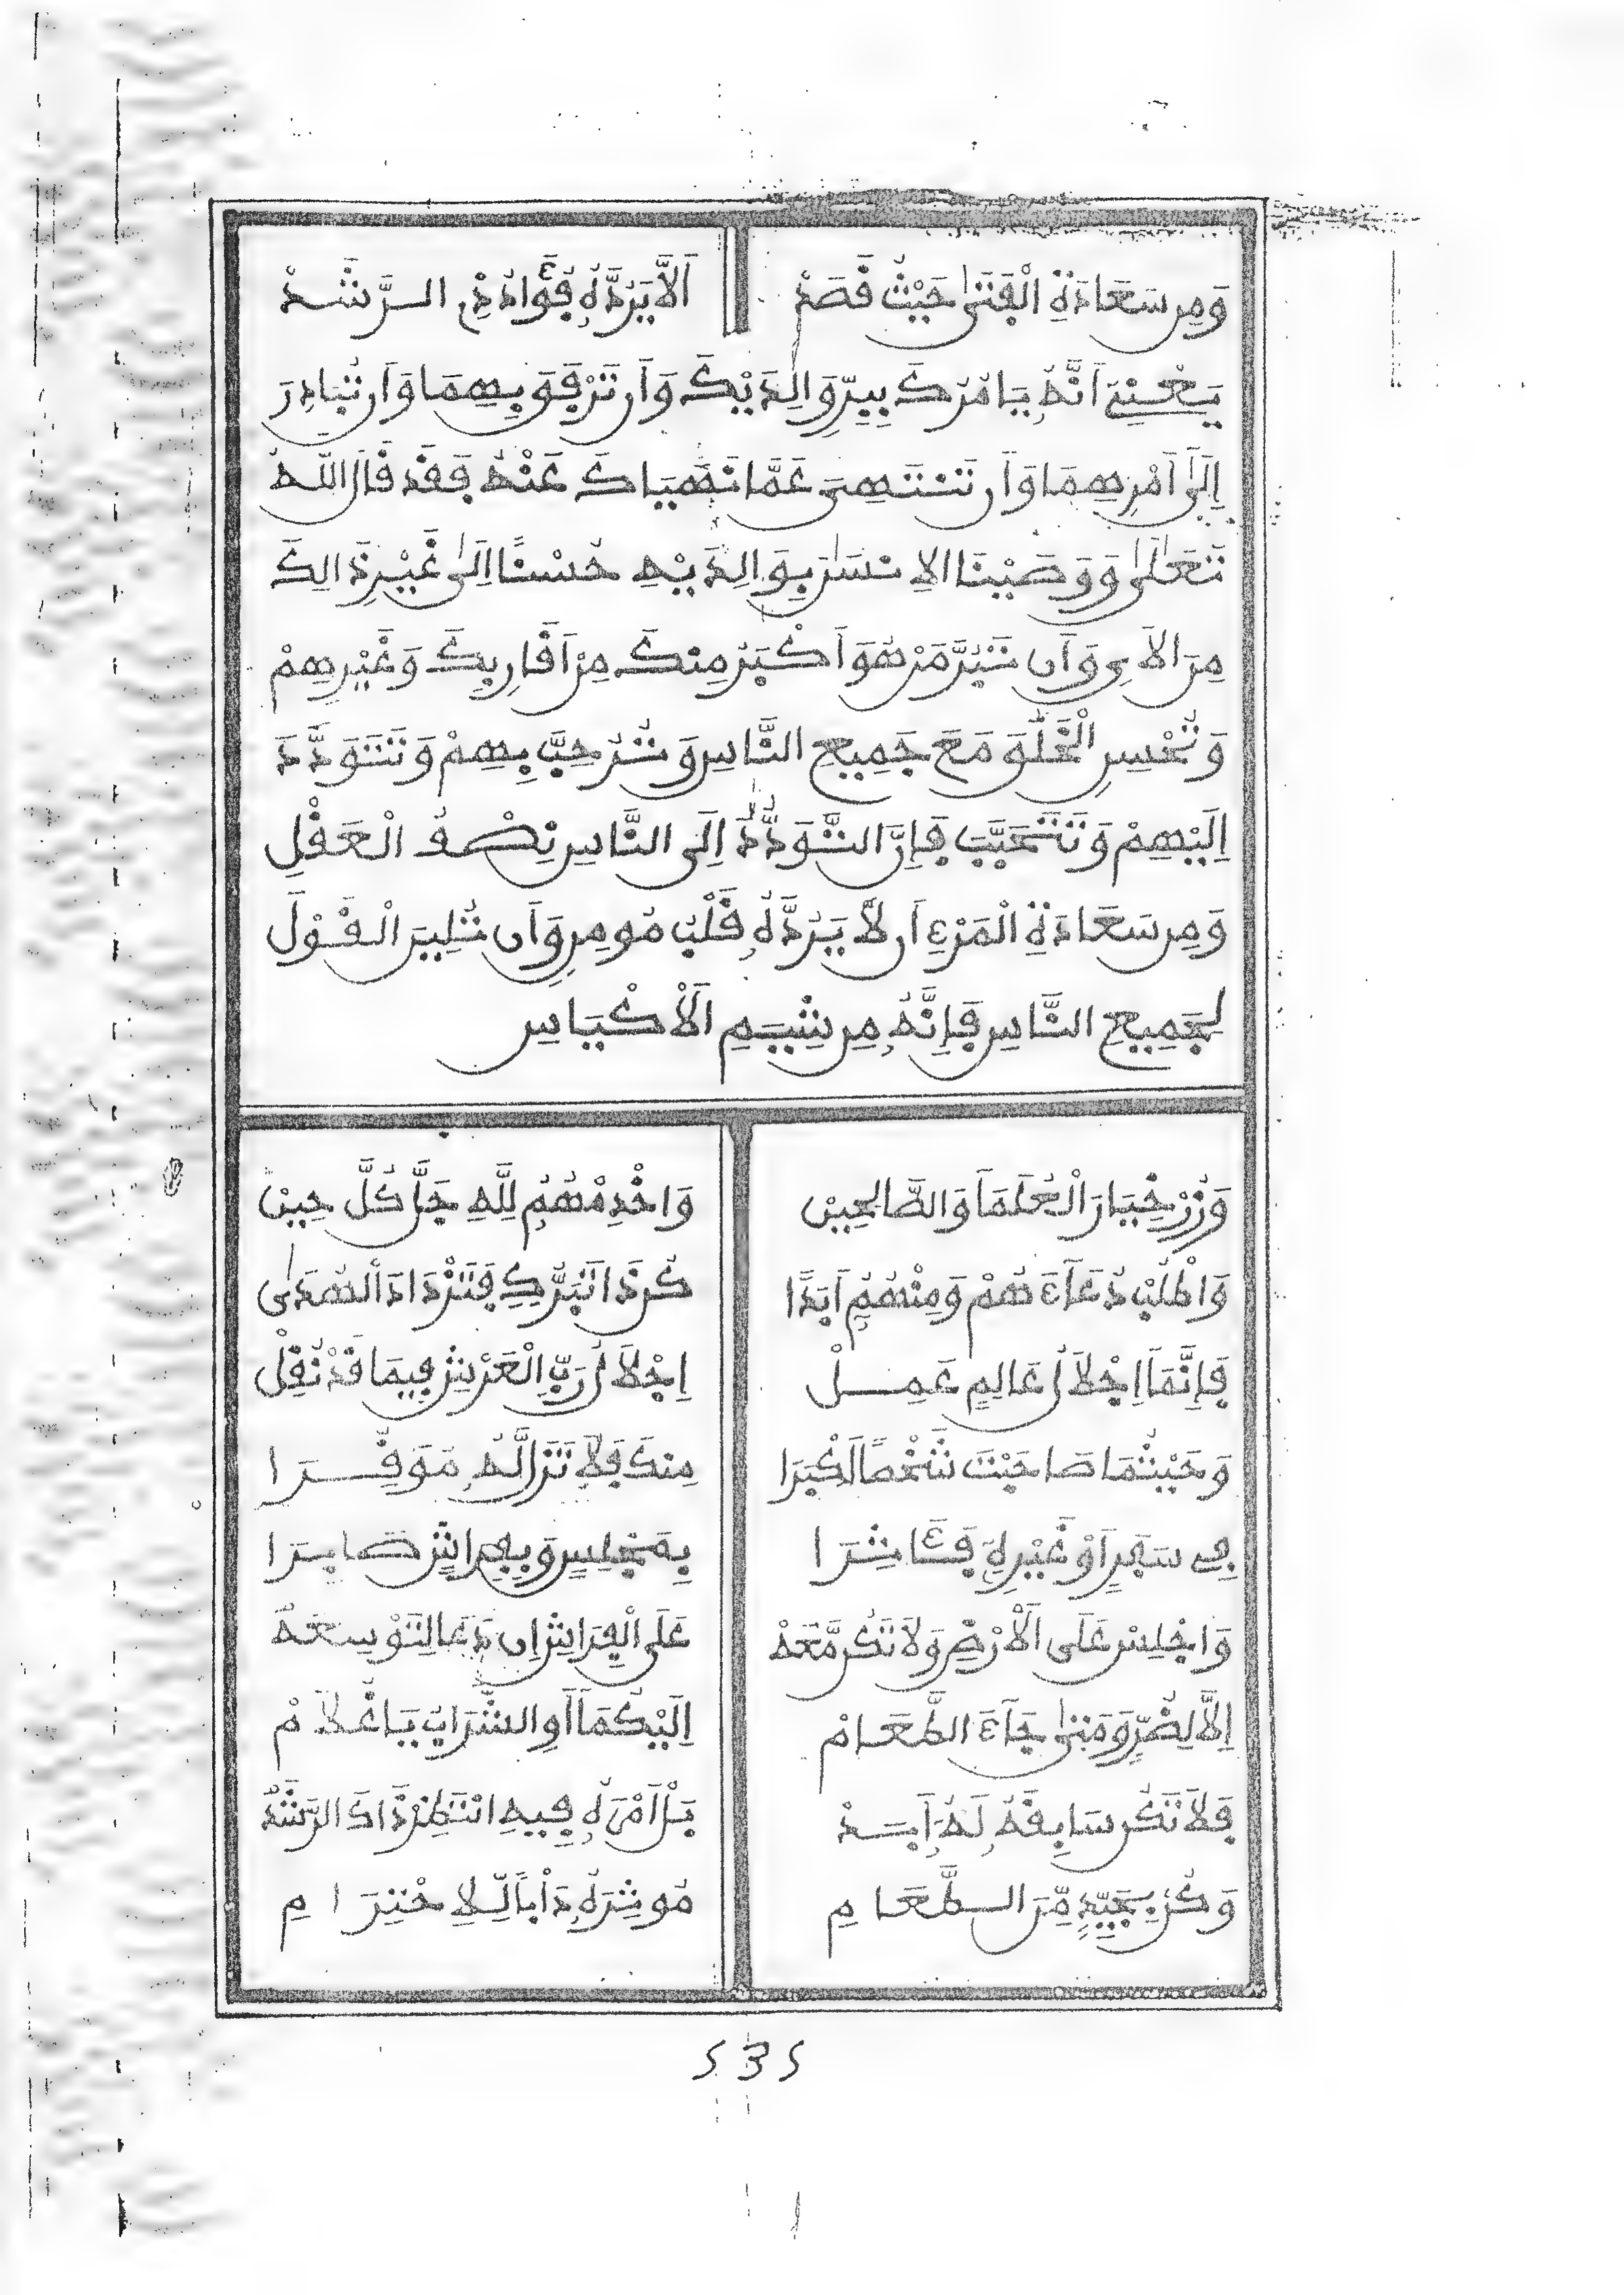 وَمِن سَعَادَةِ الْفَتَىٰ حَيْثُ قَصَدْ أَلَّا يَرُدَّهُ فُؤَادُ ذِي الرَّشَدْ
يَعْنِي أَنَّهُ يَامُرُكَ بِبِرِّ وَالِدَيْكَ وَأَن تَرْفُقَ بِهِمَا وَأَن تُبَادِرَ
إِلَىٰ أَمْرِهِمَا وَأَن تَنتَهِيَ عَمَّا نَهَيَاكَ عَنْهُ فَقَدْ قَالَ اللّٰهُ
تَعَالَىٰ وَوَصَّيْنَا الِانسَٰنَ بِوَالِدَيْهِ حُسْنًا إِلَىٰ غَيْرِ ذَالِكَ
مِنَ الآيِ وَأَن تَبُرَّ مَنْ هُوَ أَكْبَرُ مِنكَ مِنْ أَقَارِبِكَ وَغَيْرِهِمْ
وَتُحْسِنِ الْخُلُقَ مَعَ جَمِيعِ النَّاسِ وَتُرَحِّبَ بِهِمْ وَتَتَوَدَّدَ
إِلَيْهِمْ وَتَتَحَبَّبَ فَإِنَّ التَّوَدُّدَ إِلَى النَّاسِ نِصْفُ الْعَقْلِ
وَمِن سَعَادَةِ الْمَرْءِ أَن لَّا يَرُدَّهُ قَلْبُ مُومِنٍ وَأَن تُلَيِّنَ الْقَوْلَ
لِجَمِيعِ النَّاسِ فَإِنَّهُ مِن شِيَمِ الْأَكْيَاسِ
وَزُرْ خِيَارَ الْعُلَمَا وَالصَّالِحِينْ وَاخْدِمْهُمُ لِلَّهِ جَلَّ كُلَّ حِينْ
وَاطْلُبْ دُعَاءَهُمْ وَمِنْهُمُ أَبَدًا كُن ذَا تَبَرُّكٍ فَتَزْدَادَ الْهُدَىٰ
فَإِنَّمَا إِجْلَالُ عَالِمٍ عَمِلْ إِجْلَالُ رَبِّ الْعَرْشِ فِيمَا قَدْ نُقِلْ
وَحَيْثُمَا صَاحَبْتَ شَخْصًا أَكْبَرَا مِنكَ فَلَا تَزَالُ لَهُ مُوَقِّرَا
فِي سَفَرٍ أَوْ غَيْرِهِ فَآثِرَا بِمَجْلِسٍ وَبِفِرَاشٍ صَابِرَا
وَاجْلِسْ عَلَى الْأَرْضِ وَلَا تَكُن مَّعَهْ عَلَى الْفِرَاشِ إِن دَعَا لِتَوْسِعَهْ
إِلَّا لِضُرٍّ وَمَتَىٰ جَاءَ الطَّعَامْ إِلَيْكُمَا أَوِ الشَّرَابُ يَا غُلَامْ
فَلَا تَكُن سَابِقَهُ لَهُ أَبَدْ بَلْ أَمْرَهُ فِيهِ انْتَظِرْ ذَاكَ الرَّشَدْ
وَكُن بِجَيِّدٍ مِّنَ الطَّعَامِ مُوثِرَهُ دَأْبًا لِّلِاحْتِرَامِ
232